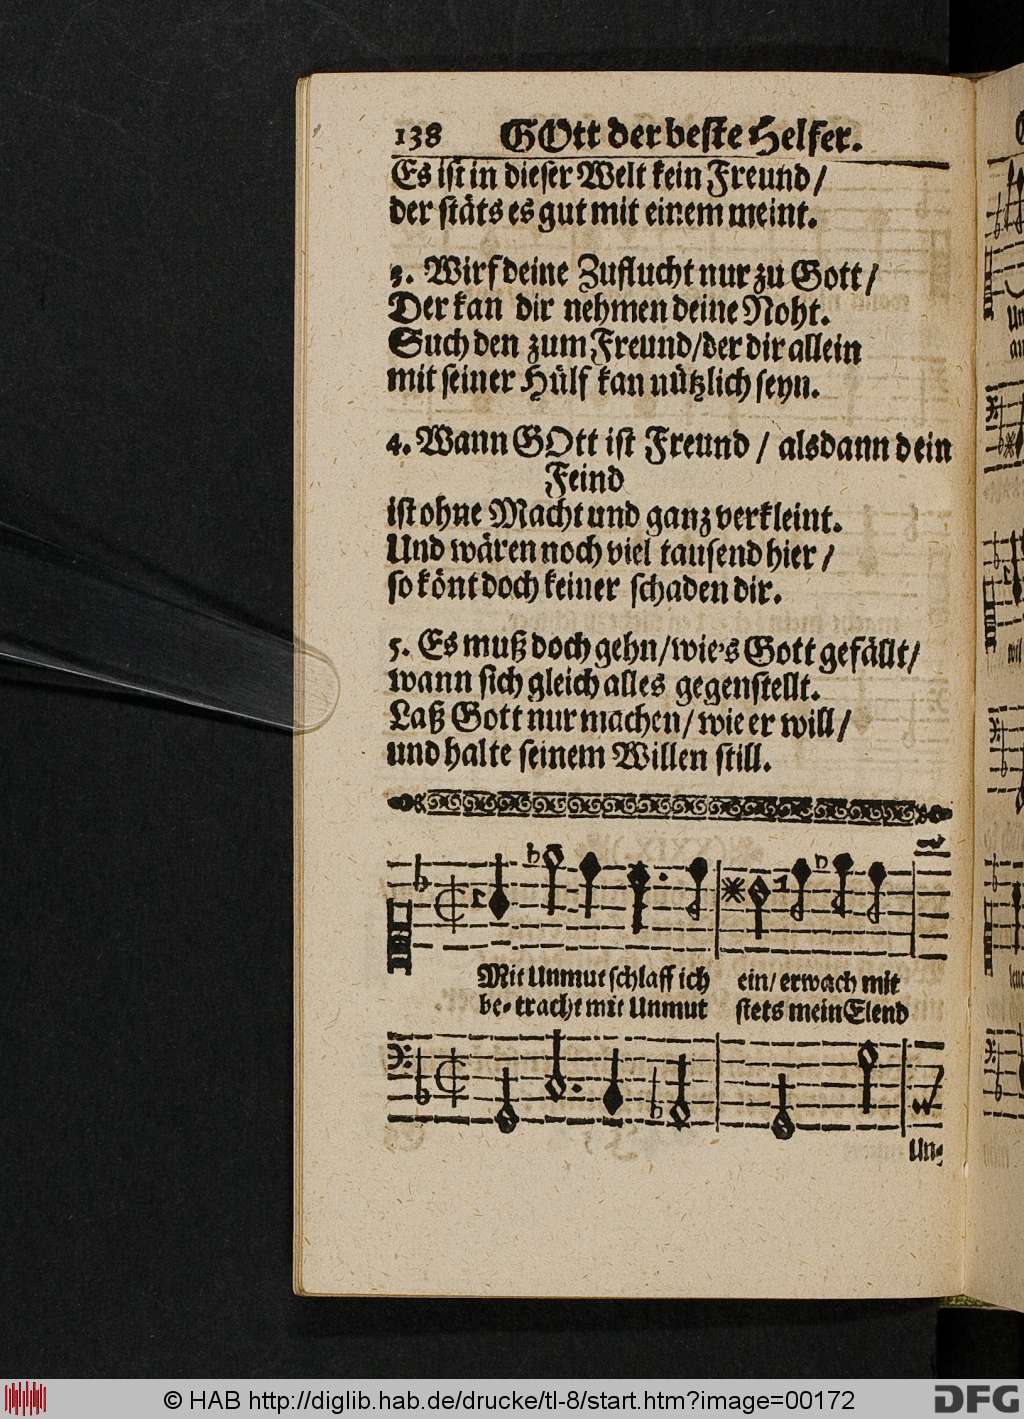 138 GOtt der beste Helfer.
Es ist in dieser Welt kein Freund /
der stäts es gut mit einem meint.
3. Wirf deine Zuflucht nur zu Gott /
Der kan dir nehmen deine Noht.
Such den zum Freund / der dir allein
mit seiner Hülf kan nützlich seyn.
4. Wann GOtt ist Freund / alsdann dein
Feind
ist ohne Macht und ganz verkleint.
Und wären noch viel tausend hier /
so könt doch keiner schaden dir.
5. Es muß doch gehn / wie's Gott gefällt /
wann sich gleich alles gegenstellt.
Laß Gott nur machen / wie er will /
und halte seinem Willen still.
Mit Unmut schlaff ich ein / erwach mit
be- tracht mit Unmut stets mein Elend
Un-
© HAB http://diglib.hab.de/drucke/tl-8/start.htm?image=00172
DFG